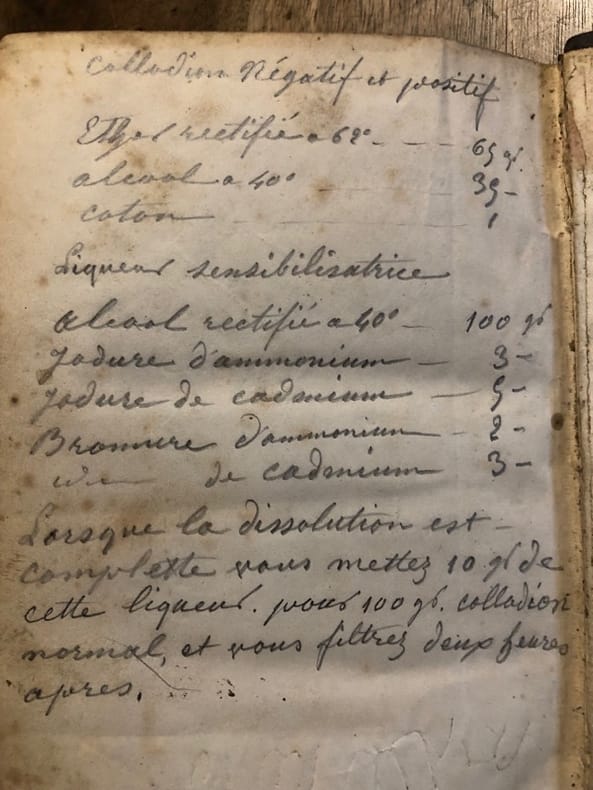 Collodion Négatif et positif
Ether rectifié a 62° - - - 65 gr.
alcool a 40° 35 -
coton 1
Liqueur sensibilisatrice
alcool rectifié a 40° - 100 gr
Jodure d'ammonium - 3 -
Jodure de cadmium - 5 -
Bromure d'ammonium - 2 -
idem de cadmium 3 -
Lorsque la dissolution est -
complette vous mettez 10 gr de
cette liqueur. pour 100 gr. collodion
normal, et vous filtrez deux heures
apres.